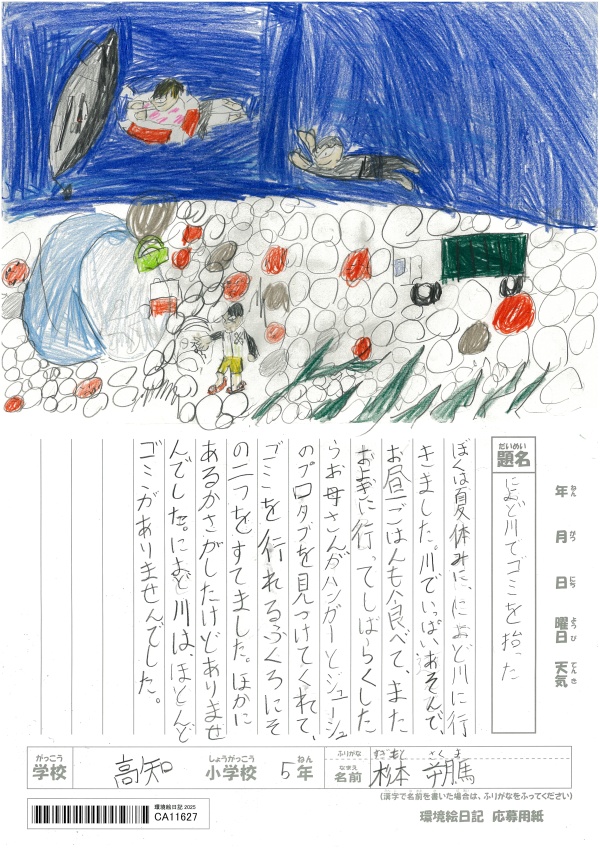 だいめい
題名
によど川でゴミを拾った
年 ねん
月 がつ
日 にち
曜日 ようび
天気 てんき
ぼくは夏休みに、によど川に行
きました。川でいっぱいあそんで、
お昼ごはんも食べて、また
およぎに行ってしばらくした
らお母さんがハンガーとジュース
のプロタブを見つけてくれて、
ゴミを行れるふくろにそ
の二つをすてました。ほかに
あるかさがしたけどありませ
んでした。によど川は、ほとんど
ゴミがありませんでした。
がっこう
学校
高知
しょうがっこう
小学校
5
ねん
年
ふりがな
すぎもと さくま
なまえ
名前
杉本 朔馬
(漢字で名前を書いた場合は、ふりがなをふってください)
環境絵日記 2025
CA11627
環境絵日記 応募用紙